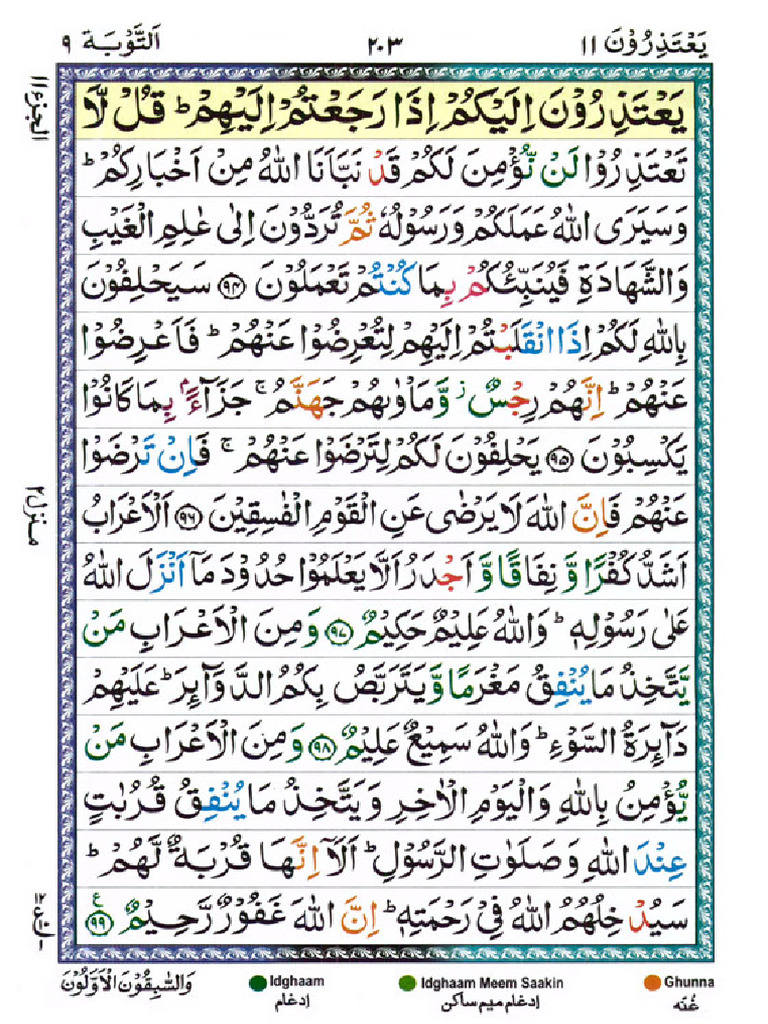 يَعْتَذِرُوْنَ ١١
٢٠٣
اَلتَّوْبَة ٩
الجزء ١١
يَعْتَذِرُوْنَ اِلَيْكُمْ اِذَا رَجَعْتُمْ اِلَيْهِمْ ؕ قُلْ لَّا
تَعْتَذِرُوْا لَنْ نُّؤْمِنَ لَكُمْ قَدْ نَبَّاَنَا اللّٰهُ مِنْ اَخْبَارِكُمْ ؕ
وَسَيَرَى اللّٰهُ عَمَلَكُمْ وَرَسُوْلُهٗ ثُمَّ تُرَدُّوْنَ اِلٰى عٰلِمِ الْغَيْبِ
وَالشَّهَادَةِ فَيُنَبِّئُكُمْ بِمَا كُنْتُمْ تَعْمَلُوْنَ ﴿٩٤﴾ سَيَحْلِفُوْنَ
بِاللّٰهِ لَكُمْ اِذَا انْقَلَبْتُمْ اِلَيْهِمْ لِتُعْرِضُوْا عَنْهُمْ ؕ فَاَعْرِضُوْا
عَنْهُمْ ؕ اِنَّهُمْ رِجْسٌ ؗ وَّمَاْوٰىهُمْ جَهَنَّمُ ۚ جَزَآءًۢ بِمَا كَانُوْا
يَكْسِبُوْنَ ﴿٩٥﴾ يَحْلِفُوْنَ لَكُمْ لِتَرْضَوْا عَنْهُمْ ۚ فَاِنْ تَرْضَوْا
عَنْهُمْ فَاِنَّ اللّٰهَ لَا يَرْضٰى عَنِ الْقَوْمِ الْفٰسِقِيْنَ ﴿٩٦﴾ اَلْاَعْرَابُ
منزل ٢
اَشَدُّ كُفْرًا وَّ نِفَاقًا وَّ اَجْدَرُ اَلَّا يَعْلَمُوْا حُدُوْدَ مَاۤ اَنْزَلَ اللّٰهُ
عَلٰى رَسُوْلِهٖ ؕ وَاللّٰهُ عَلِيْمٌ حَكِيْمٌ ﴿٩٧﴾ وَ مِنَ الْاَعْرَابِ مَنْ
يَّتَّخِذُ مَا يُنْفِقُ مَغْرَمًا وَّ يَتَرَبَّصُ بِكُمُ الدَّوَآئِرَ ؕ عَلَيْهِمْ
دَآئِرَةُ السَّوْءِ ؕ وَاللّٰهُ سَمِيْعٌ عَلِيْمٌ ﴿٩٨﴾ وَ مِنَ الْاَعْرَابِ مَنْ
يُّؤْمِنُ بِاللّٰهِ وَالْيَوْمِ الْاٰخِرِ وَ يَتَّخِذُ مَا يُنْفِقُ قُرُبٰتٍ
عِنْدَ اللّٰهِ وَ صَلَوٰتِ الرَّسُوْلِ ؕ اَلَاۤ اِنَّهَا قُرْبَةٌ لَّهُمْ ؕ
سَيُدْخِلُهُمُ اللّٰهُ فِيْ رَحْمَتِهٖ ؕ اِنَّ اللّٰهَ غَفُوْرٌ رَّحِيْمٌ ﴿٩٩﴾ ع
وَالسّٰبِقُوْنَ الْاَوَّلُوْنَ
Idghaam
اِدغام
Idghaam Meem Saakin
اِدغام ميم ساكن
Ghunna
غُنّه